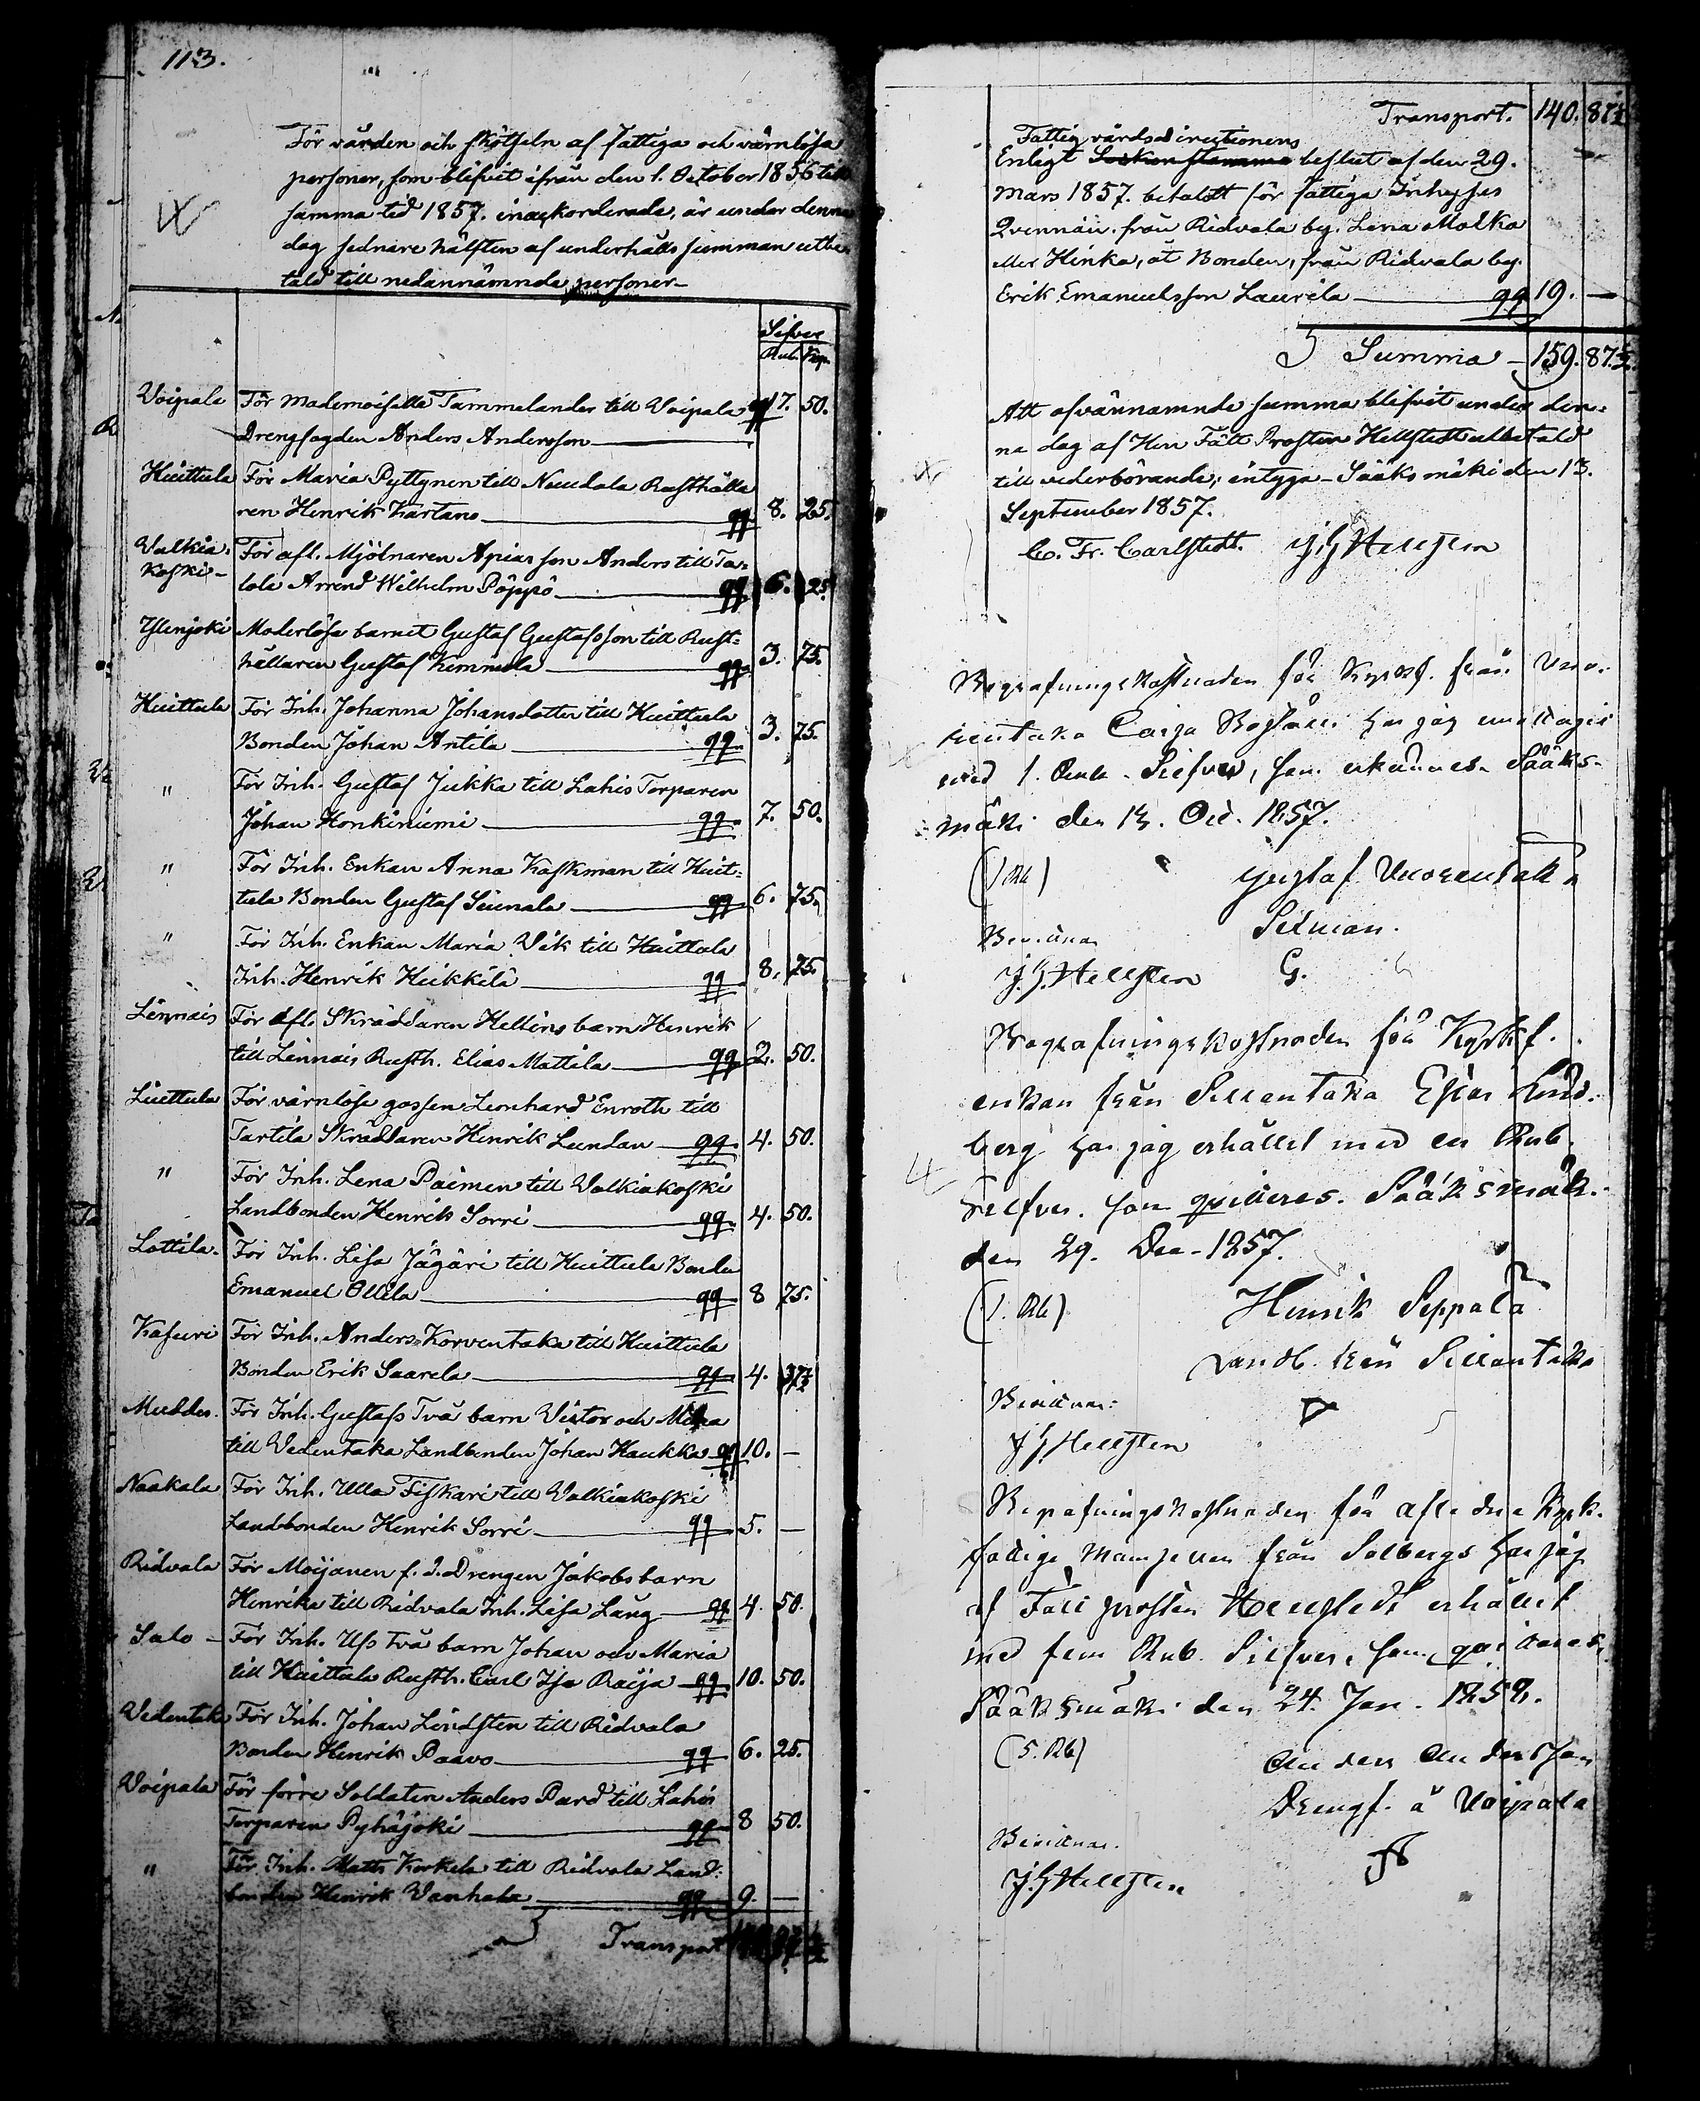 113.
För vården och skötseln af fattiga och värnlösa
personer, som blifvit ifrån den 1. October 1856 till
samma tid 1857. inackorderade, är under denna
dag sednare hälften af underhålls summan utbe-
tald till nedannämnde personer-
Silfver
Rub. Kop.
Voipala För Mademoiselle Tammelander till Voipala qq 17. 50.
Drengfogden Anders Andersson
Huittula För Maria Pyttynen till Naudala Rusthålla
ren Henrik Kartano qq 8. 25.
Valkia- För afl. Mjölnaren Apias son Anders till Ta-
koski- lola Arrend Wilhelm Pöppö qq 6. 25.
Ylenjoki Moderlösa barnet Gustaf Gustafsson till Rust-
hållaren Gustaf Kemmola qq 3. 75.
Huittula För Inh. Johanna Johansdotter till Huittula
Bonden Johan Antila qq 3. 75.
" För Inh. Gustaf Jukka till Lahis Torparen
Johan Honkiniemi qq 7. 50.
" För Inh. Enkan Anna Kaskman till Huit-
tula Bonden Gustaf Seunala qq 6. 75.
" För Inh. Enkan Maria Vik till Huittula
Inh. Henrik Heikkilä qq 8. 75.
Linnais För afl. Skräddaren Hellins barn Henrik
till Linnais Rusth. Elias Mattila qq 2. 50.
Luttula För värnlöse gossen Leonhard Enroth till
Tartila Skräddaren Henrik Lundan qq 4. 50.
" För Inh. Lena Paimen till Valkiakoski
Landbonden Henrik Sorri qq 4. 50.
Lottila För Inh. Lisa Jägäri till Huittula Bonden
Emanuel Ollila qq 8 75.
Kasuri För Inh. Anders Korventaka till Huittula
Bonden Erik Saarela qq 4. 37½
Muddes. För Inh. Gustafs Två barn Victor och Mina
till Vedentaka Landbonden Johan Haukka qq 10. —
Naakala För Inh. Ulla Fiskari till Valkiakoski
Landbonden Henrik Sorri qq 5. —
Ridvala För Moijanen f. d. Drengen Jakobs barn
Henrika till Ridvala Inh. Lisa Lång qq 4. 50.
Salo - För Inh. Ulfs två barn Johan och Maria
till Huittula Rusth. Carl Isa Raija qq 10. 50.
Vedentak För Inh. Johan Lindsten till Ridvala
Bonden Henrik Paavo qq 6. 25.
Voipala För förre Soldaten Anders Pard till Lahis
Torparen Pyhäjoki qq 8 50.
" För Inh. Matts Korkela till Ridvala Land-
bonden Henrik Vanhala qq 9. —
Transport
Transport. 140. 87½
Fattigvårdsdirectionens
Enligt Sockenstämmo beslut af den 29.
Mars 1857. betaldt för fattiga Inhyses
Qvinnan från Ridvala by. Lena Molka
eller Hinka, åt Bonden, från Ridvala by.
Erik Emanuelsson Laurila qq 19. —
Summa - 159. 87.½
Att ofvannämnde summa blifvit under den-
na dag af Herr Fält Prosten Hellstedt utbetald
till vederbörande, intyga - Sääksmäki den 13.
September 1857.
C. Fr. Carlstedt. J G Hellsten
Begrafningskostnaden för Kyrkf. från Vuo-
rentaka Caisa har jag emottagit
med 1. Rub. Silfver, som erkännes. Sääks-
mäki den 13. Dec. 1857.
(1 Rb) Gustaf Vuorentaka
Bevittnar
J. G. Hellsten G.
Begrafningskostnaden för Kyrkf.
enkan från Sillantaka Ester Lind-
berg har jag erhållit med en Rub.
Silfver. som qvitteras. Sääksmäki.
den 29. Dec. 1857.
(1. Rb) Henrik Seppälä
Landb. från Sillantaka
Bevittnar:
J G Hellsten
Begrafningskostnaden för aflidne Kyrk-
fattige Mamsellen från Solbergs har jag
af Fält prosten Hellstedt erhållit
med fem Rub. Silfver, som qvitteras,
Sääksmäki den 24. Jan. 1858.
(5. Rb) Anders Andersson
Drengf. å Voipala
Bevittnar.
J. G Hellsten